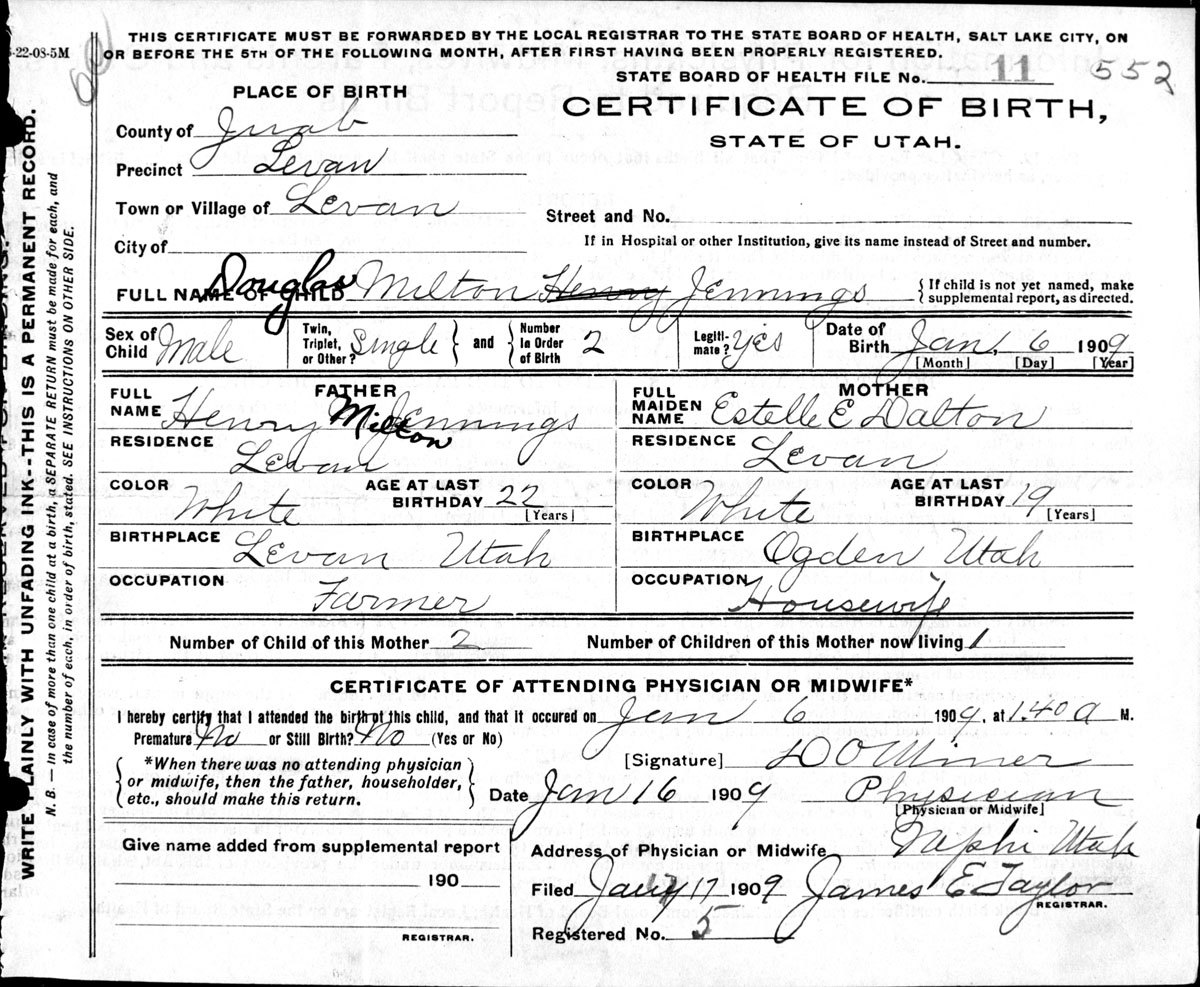 THIS CERTIFICATE MUST BE FORWARDED BY THE LOCAL REGISTRAR TO THE STATE BOARD OF HEALTH, SALT LAKE CITY, ON
-22-08-5M OR BEFORE THE 5TH OF THE FOLLOWING MONTH, AFTER FIRST HAVING BEEN PROPERLY REGISTERED.
STATE BOARD OF HEALTH FILE No. 11 552
PLACE OF BIRTH
CERTIFICATE OF BIRTH,
STATE OF UTAH.
County of Juab
Precinct Levan
Town or Village of Levan
Street and No.
City of
If in Hospital or other Institution, give its name instead of Street and number.
FULL NAME OF CHILD Douglas Milton Henry Jennings { If child is not yet named, make
supplemental report, as directed.
Sex of Child Male
Twin, Triplet, or Other? Single } and { Number In Order of Birth 2
Legiti-mate? Yes
Date of Birth Jan, 6 1909
[Month] [Day] [Year]
FATHER
FULL NAME Henry Milton Jennings
RESIDENCE Levan
COLOR White AGE AT LAST BIRTHDAY 22 [Years]
BIRTHPLACE Levan Utah
OCCUPATION Farmer
MOTHER
FULL MAIDEN NAME Estelle E Dalton
RESIDENCE Levan
COLOR White AGE AT LAST BIRTHDAY 19 [Years]
BIRTHPLACE Ogden Utah
OCCUPATION Housewife
Number of Child of this Mother 2 Number of Children of this Mother now living 1
CERTIFICATE OF ATTENDING PHYSICIAN OR MIDWIFE*
I hereby certify that I attended the birth of this child, and that it occured on Jan 6 1909, at 1.40 a M.
Premature? No or Still Birth? No (Yes or No)
*When there was no attending physician
or midwife, then the father, householder,
etc., should make this return.
[Signature] D O Miner
Date Jan 16 1909 Physician
[Physician or Midwife]
Give name added from supplemental report
190
REGISTRAR.
Address of Physician or Midwife Nephi Utah
Filed Jany 17 1909 James E Taylor
REGISTRAR.
Registered No. 5
WRITE PLAINLY WITH UNFADING INK--THIS IS A PERMANENT RECORD.
N. B. — In case of more than one child at a birth, a SEPARATE RETURN must be made for each, and
the number of each, in order of birth, stated. SEE INSTRUCTIONS ON OTHER SIDE.